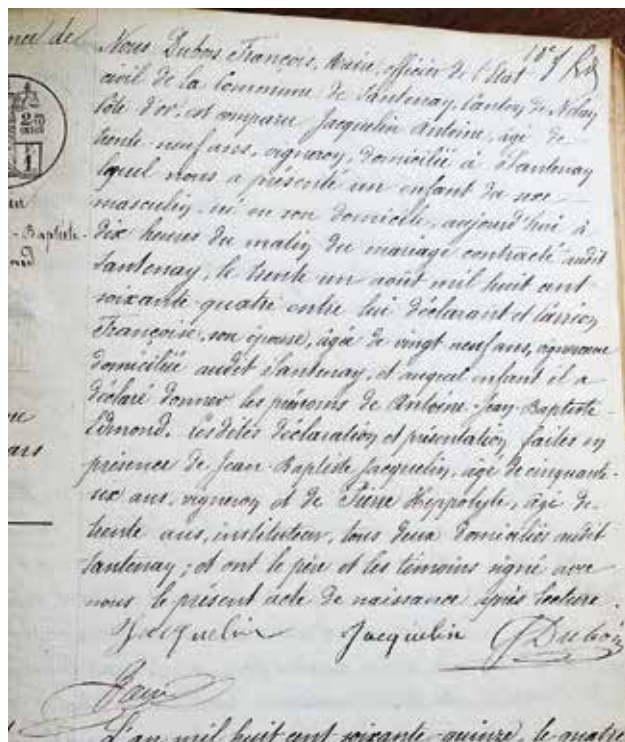 Nous Dubois François, Maire, officier de l'Etat
civil de la Commune de Santenay, Canton de Nolay
Côte d'or, est comparu Jacquelin Antoine, âgé de
trente neuf ans, vigneron, domicilié à Santenay
lequel nous a présenté un enfant du sexe
masculin, né en son domicile, aujourd'hui à
dix heures du matin du mariage contracté audit
Santenay, le trente un août mil huit cent
soixante quatre entre lui déclarant et
Françoise, son épouse, âgée de vingt neuf ans, vigneronne
domiciliée audit Santenay, et auquel enfant il a
déclaré donner les prénoms de Antoine-Jean-Baptiste-
Edmond. Lesdites déclaration et présentation faites en
présence de Jean-Baptiste Jacquelin, âgé de cinquante-
six ans, vigneron et de Hippolyte, âgé de
trente ans, instituteur, tous deux domiciliés audit
Santenay; et ont le père et les témoins signé avec
nous le présent acte de naissance après lecture.
Jacquelin Jacquelin Dubois
L'an mil huit cent soixante-quinze, le quatre
de
- Baptiste-